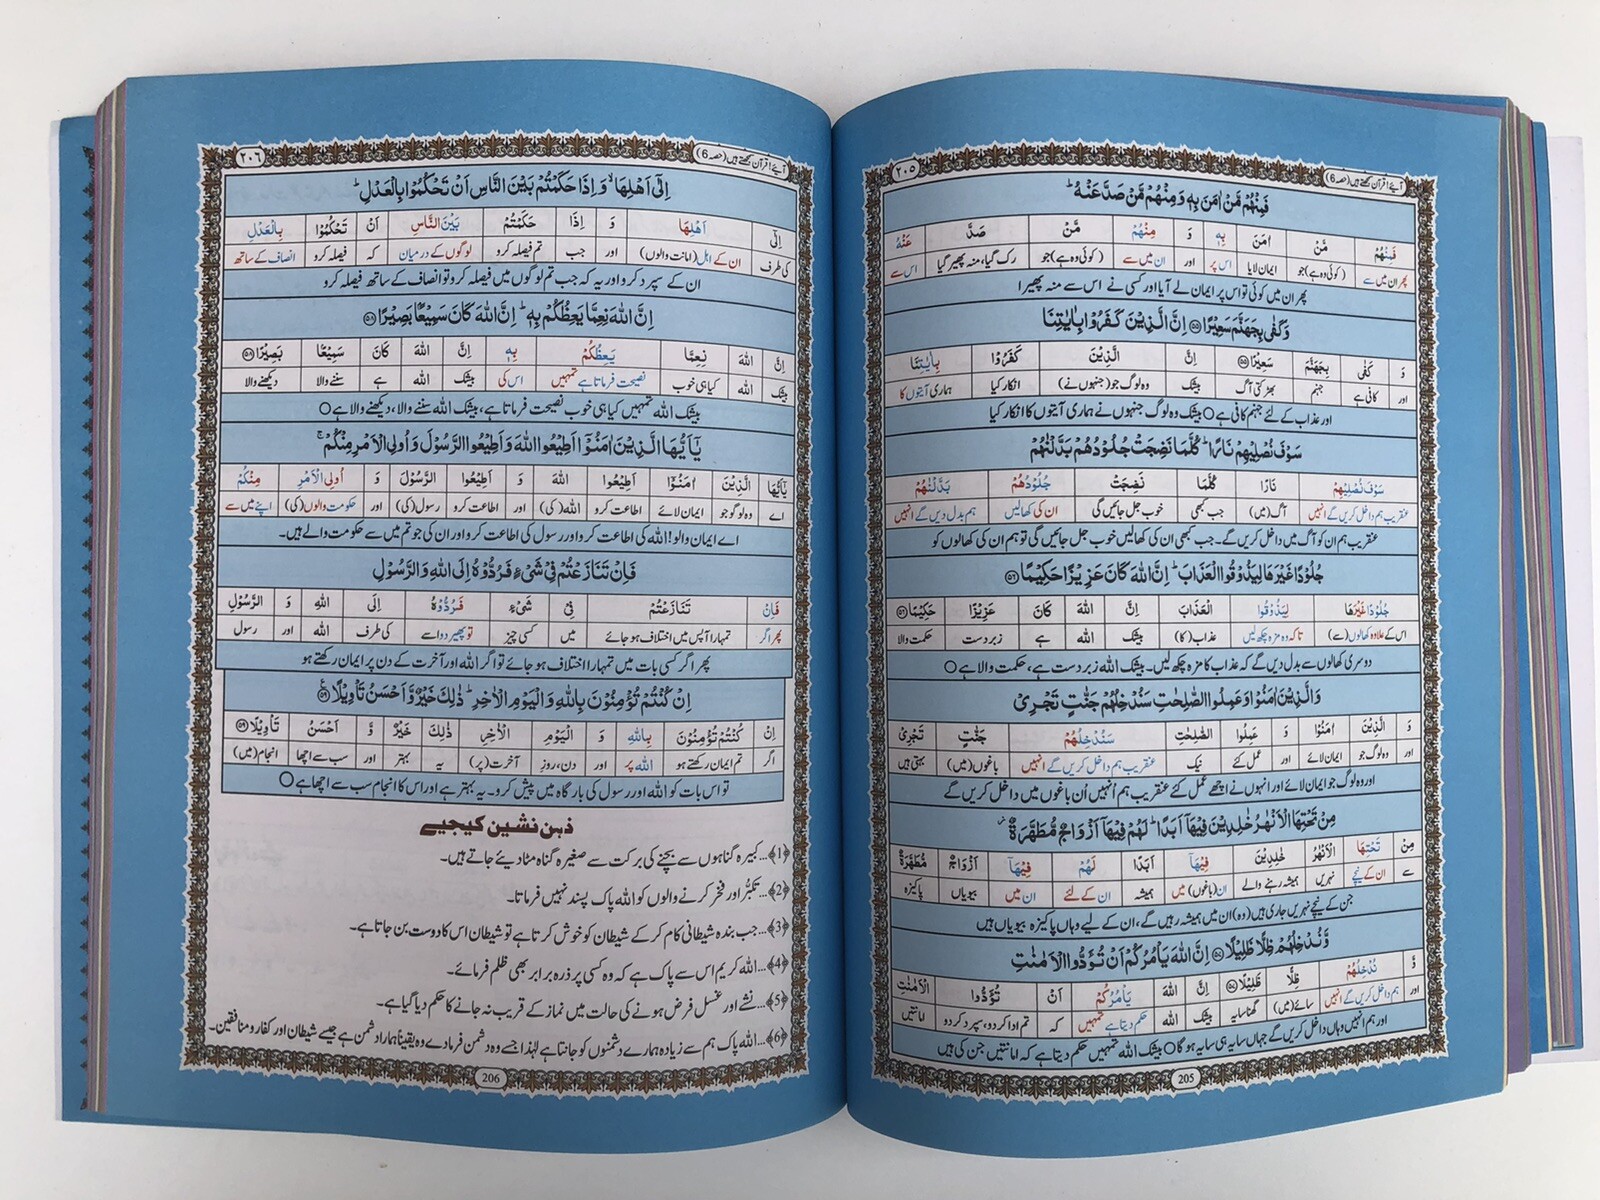 آیئے! قرآن سمجھتے ہیں (حصہ 6) ٢٠٥
فَمِنْهُمْ مَّنْ اٰمَنَ بِهٖ وَ مِنْهُمْ مَّنْ صَدَّ عَنْهُ ؕ
فَمِنْهُمْ مَّنْ اٰمَنَ بِهٖ وَ مِنْهُمْ مَّنْ صَدَّ عَنْهُ
پھر ان میں سے (کوئی وہ ہے) جو ایمان لایا اس پر اور ان میں سے (کوئی وہ ہے) جو رک گیا، منہ پھیر گیا اس سے
پھر ان میں کوئی تو اس پر ایمان لے آیا اور کسی نے اس سے منہ پھیرا
وَ كَفٰى بِجَهَنَّمَ سَعِیْرًا ﴿۵۵﴾ اِنَّ الَّذِیْنَ كَفَرُوْا بِاٰیٰتِنَا
وَ كَفٰى بِجَهَنَّمَ سَعِیْرًا ﴿۵۵﴾ اِنَّ الَّذِیْنَ كَفَرُوْا بِاٰیٰتِنَا
اور کافی ہے جہنم بھڑکتی آگ بیشک وہ لوگ جو (جنہوں نے) انکار کیا ہماری آیتوں کا
اور عذاب کے لئے جہنم کافی ہے ○ بیشک وہ لوگ جنہوں نے ہماری آیتوں کا انکار کیا
سَوْفَ نُصْلِیْهِمْ نَارًا ؕ كُلَّمَا نَضِجَتْ جُلُوْدُهُمْ بَدَّلْنٰهُمْ
سَوْفَ نُصْلِیْهِمْ نَارًا كُلَّمَا نَضِجَتْ جُلُوْدُهُمْ بَدَّلْنٰهُمْ
عنقریب ہم داخل کریں گے انہیں آگ (میں) جب کبھی خوب جل جائیں گی ان کی کھالیں ہم بدل دیں گے انہیں
عنقریب ہم ان کو آگ میں داخل کریں گے۔ جب کبھی ان کی کھالیں خوب جل جائیں گی تو ہم ان کی کھالوں کو
جُلُوْدًا غَیْرَهَا لِیَذُوْقُوا الْعَذَابَ ؕ اِنَّ اللّٰهَ كَانَ عَزِیْزًا حَكِیْمًا ﴿۵۶﴾
جُلُوْدًا غَیْرَهَا لِیَذُوْقُوا الْعَذَابَ اِنَّ اللّٰهَ كَانَ عَزِیْزًا حَكِیْمًا ﴿۵۶﴾
اس کے علاوہ کھالوں (سے) تاکہ وہ مزہ چکھ لیں عذاب (کا) بیشک اللہ ہے زبردست حکمت والا
دوسری کھالوں سے بدل دیں گے کہ عذاب کا مزہ چکھ لیں۔ بیشک اللہ زبردست ہے، حکمت والا ہے ○
وَ الَّذِیْنَ اٰمَنُوْا وَ عَمِلُوا الصّٰلِحٰتِ سَنُدْخِلُهُمْ جَنّٰتٍ تَجْرِیْ
وَ الَّذِیْنَ اٰمَنُوْا وَ عَمِلُوا الصّٰلِحٰتِ سَنُدْخِلُهُمْ جَنّٰتٍ تَجْرِیْ
اور وہ لوگ جو ایمان لائے اور عمل کئے نیک عنقریب ہم داخل کریں گے انہیں باغوں (میں) بہتی ہیں
اور وہ لوگ جو ایمان لائے اور انہوں نے اچھے عمل کئے عنقریب ہم اُنہیں اُن باغوں میں داخل کریں گے
مِنْ تَحْتِهَا الْاَنْهٰرُ خٰلِدِیْنَ فِیْهَاۤ اَبَدًا ؕ لَهُمْ فِیْهَاۤ اَزْوَاجٌ مُّطَهَّرَةٌ ٘
مِنْ تَحْتِهَا الْاَنْهٰرُ خٰلِدِیْنَ فِیْهَاۤ اَبَدًا لَهُمْ فِیْهَاۤ اَزْوَاجٌ مُّطَهَّرَةٌ
سے ان کے نیچے نہریں ہمیشہ رہنے والے ان (باغوں) میں ہمیشہ ان کے لئے ان میں بیویاں پاکیزہ
جن کے نیچے نہریں جاری ہیں (وہ) ان میں ہمیشہ رہیں گے، ان کے لیے وہاں پاکیزہ بیویاں ہیں
وَّ نُدْخِلُهُمْ ظِلًّا ظَلِیْلًا ﴿۵۷﴾ اِنَّ اللّٰهَ یَاْمُرُكُمْ اَنْ تُؤَدُّوا الْاَمٰنٰتِ
وَّ نُدْخِلُهُمْ ظِلًّا ظَلِیْلًا ﴿۵۷﴾ اِنَّ اللّٰهَ یَاْمُرُكُمْ اَنْ تُؤَدُّوا الْاَمٰنٰتِ
اور ہم داخل کریں گے انہیں سائے (میں) گھنا سایہ بیشک اللہ حکم دیتا ہے تمہیں کہ تم ادا کر دو، سپرد کر دو امانتیں
اور ہم انہیں وہاں داخل کریں گے جہاں سایہ ہی سایہ ہو گا ○ بیشک اللہ تمہیں حکم دیتا ہے کہ امانتیں جن کی ہیں
205
آیئے! قرآن سمجھتے ہیں (حصہ 6) ٢٠٦
اِلٰۤى اَهْلِهَا ۙ وَ اِذَا حَكَمْتُمْ بَیْنَ النَّاسِ اَنْ تَحْكُمُوْا بِالْعَدْلِ ؕ
اِلٰۤى اَهْلِهَا وَ اِذَا حَكَمْتُمْ بَیْنَ النَّاسِ اَنْ تَحْكُمُوْا بِالْعَدْلِ
کی طرف ان کے اہل (امانت والوں) اور جب تم فیصلہ کرو لوگوں کے درمیان کہ فیصلہ کرو انصاف کے ساتھ
ان کے سپرد کرو اور یہ کہ جب تم لوگوں میں فیصلہ کرو تو انصاف کے ساتھ فیصلہ کرو
اِنَّ اللّٰهَ نِعِمَّا یَعِظُكُمْ بِهٖ ؕ اِنَّ اللّٰهَ كَانَ سَمِیْعًۢا بَصِیْرًا ﴿۵۸﴾
اِنَّ اللّٰهَ نِعِمَّا یَعِظُكُمْ بِهٖ اِنَّ اللّٰهَ كَانَ سَمِیْعًا بَصِیْرًا ﴿۵۸﴾
بیشک اللہ کیا ہی خوب نصیحت فرماتا ہے تمہیں اس کی بیشک اللہ ہے سننے والا دیکھنے والا
بیشک اللہ تمہیں کیا ہی خوب نصیحت فرماتا ہے، بیشک اللہ سننے والا، دیکھنے والا ہے ○
یٰۤاَیُّهَا الَّذِیْنَ اٰمَنُوْۤا اَطِیْعُوا اللّٰهَ وَ اَطِیْعُوا الرَّسُوْلَ وَ اُولِی الْاَمْرِ مِنْكُمْ ۚ
یٰۤاَیُّهَا الَّذِیْنَ اٰمَنُوْۤا اَطِیْعُوا اللّٰهَ وَ اَطِیْعُوا الرَّسُوْلَ وَ اُولِی الْاَمْرِ مِنْكُمْ
اے وہ لوگو جو ایمان لائے اطاعت کرو اللہ (کی) اور اطاعت کرو رسول (کی) اور حکومت والوں (کی) اپنے میں سے
اے ایمان والو! اللہ کی اطاعت کرو اور رسول کی اطاعت کرو اور ان کی جو تم میں سے حکومت والے ہیں۔
فَاِنْ تَنَازَعْتُمْ فِیْ شَیْءٍ فَرُدُّوْهُ اِلَى اللّٰهِ وَ الرَّسُوْلِ
فَاِنْ تَنَازَعْتُمْ فِیْ شَیْءٍ فَرُدُّوْهُ اِلَى اللّٰهِ وَ الرَّسُوْلِ
پھر اگر تمہارا آپس میں اختلاف ہو جائے میں کسی چیز تو پھیر دو اسے کی طرف اللہ اور رسول
پھر اگر کسی بات میں تمہارا اختلاف ہو جائے تو اگر اللہ اور آخرت کے دن پر ایمان رکھتے ہو
اِنْ كُنْتُمْ تُؤْمِنُوْنَ بِاللّٰهِ وَ الْیَوْمِ الْاٰخِرِ ؕ ذٰلِكَ خَیْرٌ وَّ اَحْسَنُ تَاْوِیْلًا ﴿۵۹﴾
اِنْ كُنْتُمْ تُؤْمِنُوْنَ بِاللّٰهِ وَ الْیَوْمِ الْاٰخِرِ ذٰلِكَ خَیْرٌ وَّ اَحْسَنُ تَاْوِیْلًا ﴿۵۹﴾
اگر تم ایمان رکھتے ہو اللہ پر اور دن، روزِ آخرت (پر) یہ بہتر اور سب سے اچھا انجام (میں)
تو اس بات کو اللہ اور رسول کی بارگاہ میں پیش کرو۔ یہ بہتر ہے اور اس کا انجام سب سے اچھا ہے ○
ذہن نشین کیجیے
﴿1﴾… کبیرہ گناہوں سے بچنے کی برکت سے صغیرہ گناہ مٹا دیئے جاتے ہیں۔
﴿2﴾… تکبُّر اور فخر کرنے والوں کو اللہ پاک پسند نہیں فرماتا۔
﴿3﴾… جب بندہ شیطانی کام کر کے شیطان کو خوش کرتا ہے تو شیطان اس کا دوست بن جاتا ہے۔
﴿4﴾… اللہ کریم اس سے پاک ہے کہ وہ کسی پر ذرہ برابر بھی ظلم فرمائے۔
﴿5﴾… نشے اور غسل فرض ہونے کی حالت میں نماز کے قریب نہ جانے کا حکم دیا گیا ہے۔
﴿6﴾… اللہ پاک ہم سے زیادہ ہمارے دشمنوں کو جانتا ہے لہٰذا جسے وہ دشمن فرما دے وہ یقیناً ہمارا دشمن ہے جیسے شیطان اور کفار و منافقین۔
206